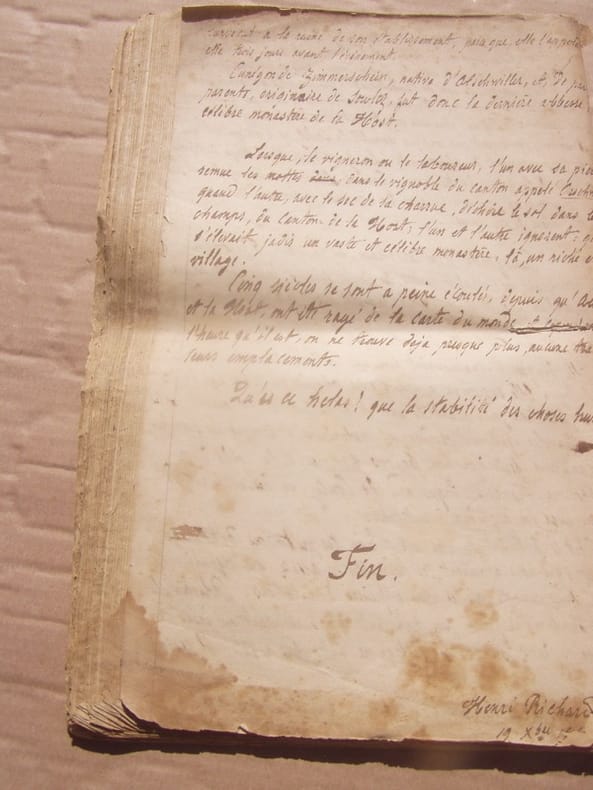 survécut à la ruine de son établissement, parce que, elle l'appela
elle trois jours avant l'évènement.
Cunégonde Zimmersheim, native d'Olschwiller, et, de par
parents, originaire de Soultz, fut donc la dernière abbesse
célèbre monastère de la Höst.
Lorsque, le vigneron ou le laboureur, l'un avec sa pio
remue les mottes dans, dans le vignoble du canton appelé
quand l'autre, avec le soc de la charrue, déchire le sol dans le
champs, du canton de la Hort; l'un et l'autre ignorent; q
s'élevait jadis un vaste et célèbre monastère, là, un riche e
village.
Cinq siècles se sont a peine écoulés, depuis qu'
et la Höst, ont été rayé de la carte du monde
l'heure qu'il est, on ne trouve déja presque plus, aucune tra
leurs emplacements.
Qu'es ce helas! que la stabilité des choses hum
Fin.
Henri Richard
19 Xbre